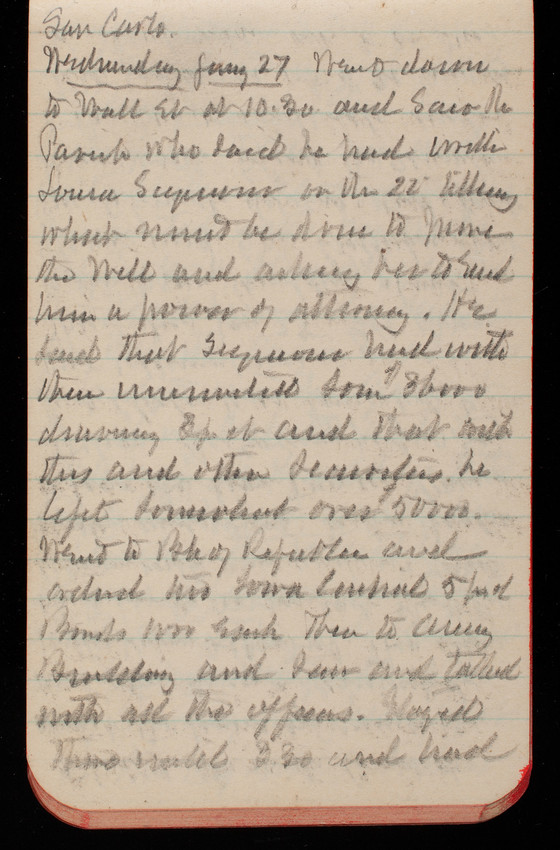 San Carlo.
Wednesday Jany 27 Went down
to Wall St at 10.30 and Saw Mr
Parish who said he had written
Louisa Seymour on the 22 telling
what must be done to prove
the Will and asking her to send
him a power of attorney. He
said that Seymour had with
them uninvested some $36000
drawing 3 p ct and that with
this and other Securities he
left somewhat over $50000.
Went to Bk of Republic and
ordered two Iowa Central 5 pr ct
Bonds 1000 Each Then to Army
Building and Saw and talked
with all the officers. Stayed
there until 3 30 and had